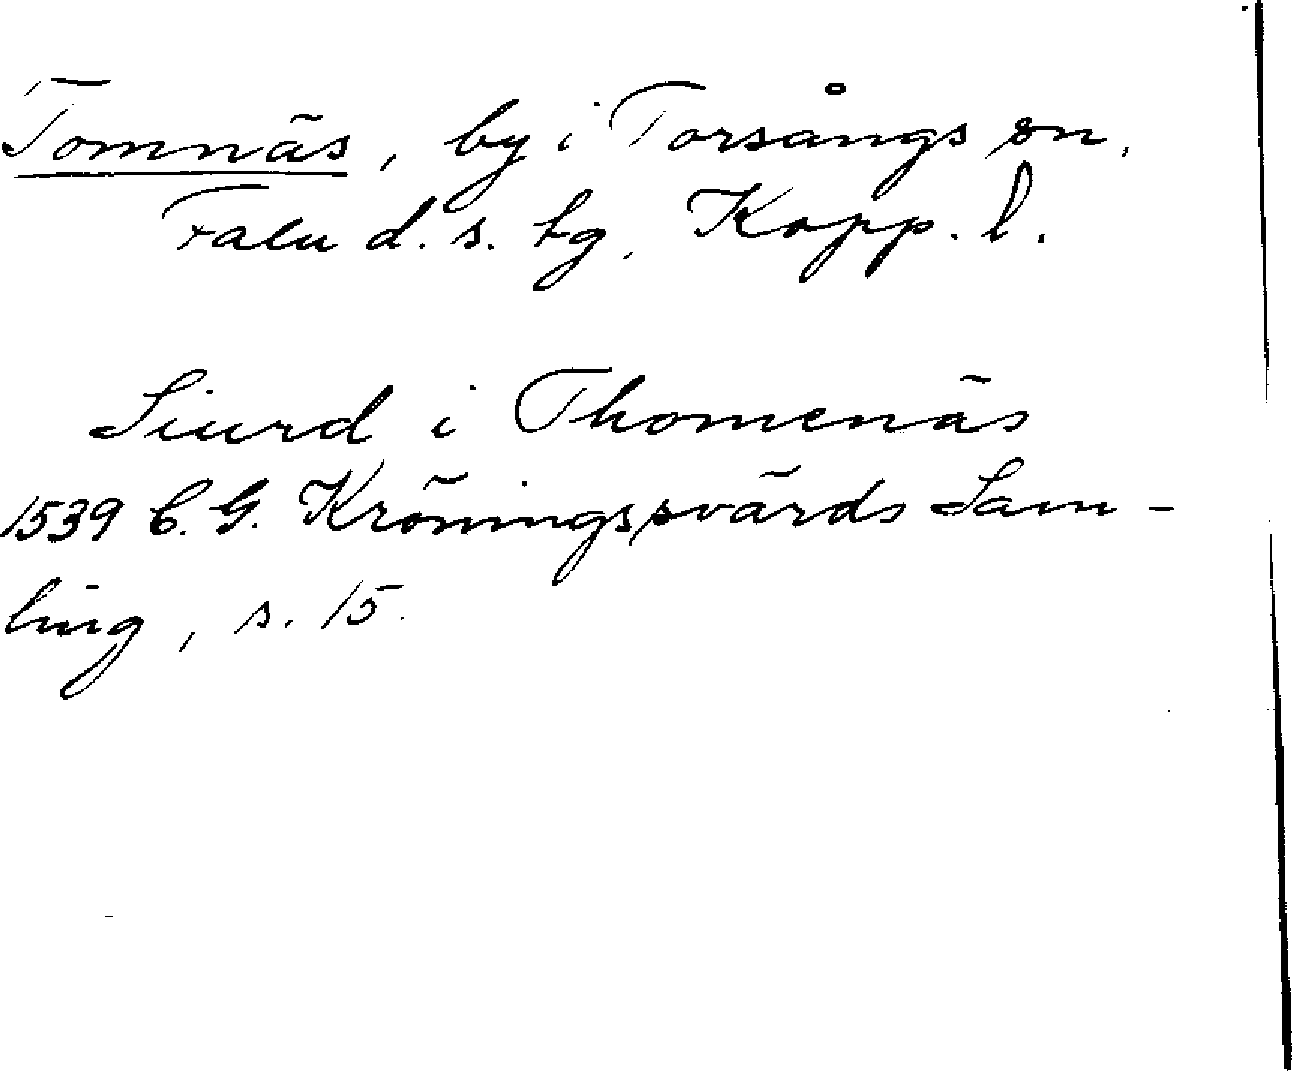 Tomnäs, by i Torsångs sn,
Falu d. s. tg, Kopp. l.
Siurd i Thomenäs
1539 C. G. Kröningssvärds Sam-
ling, s. 15.